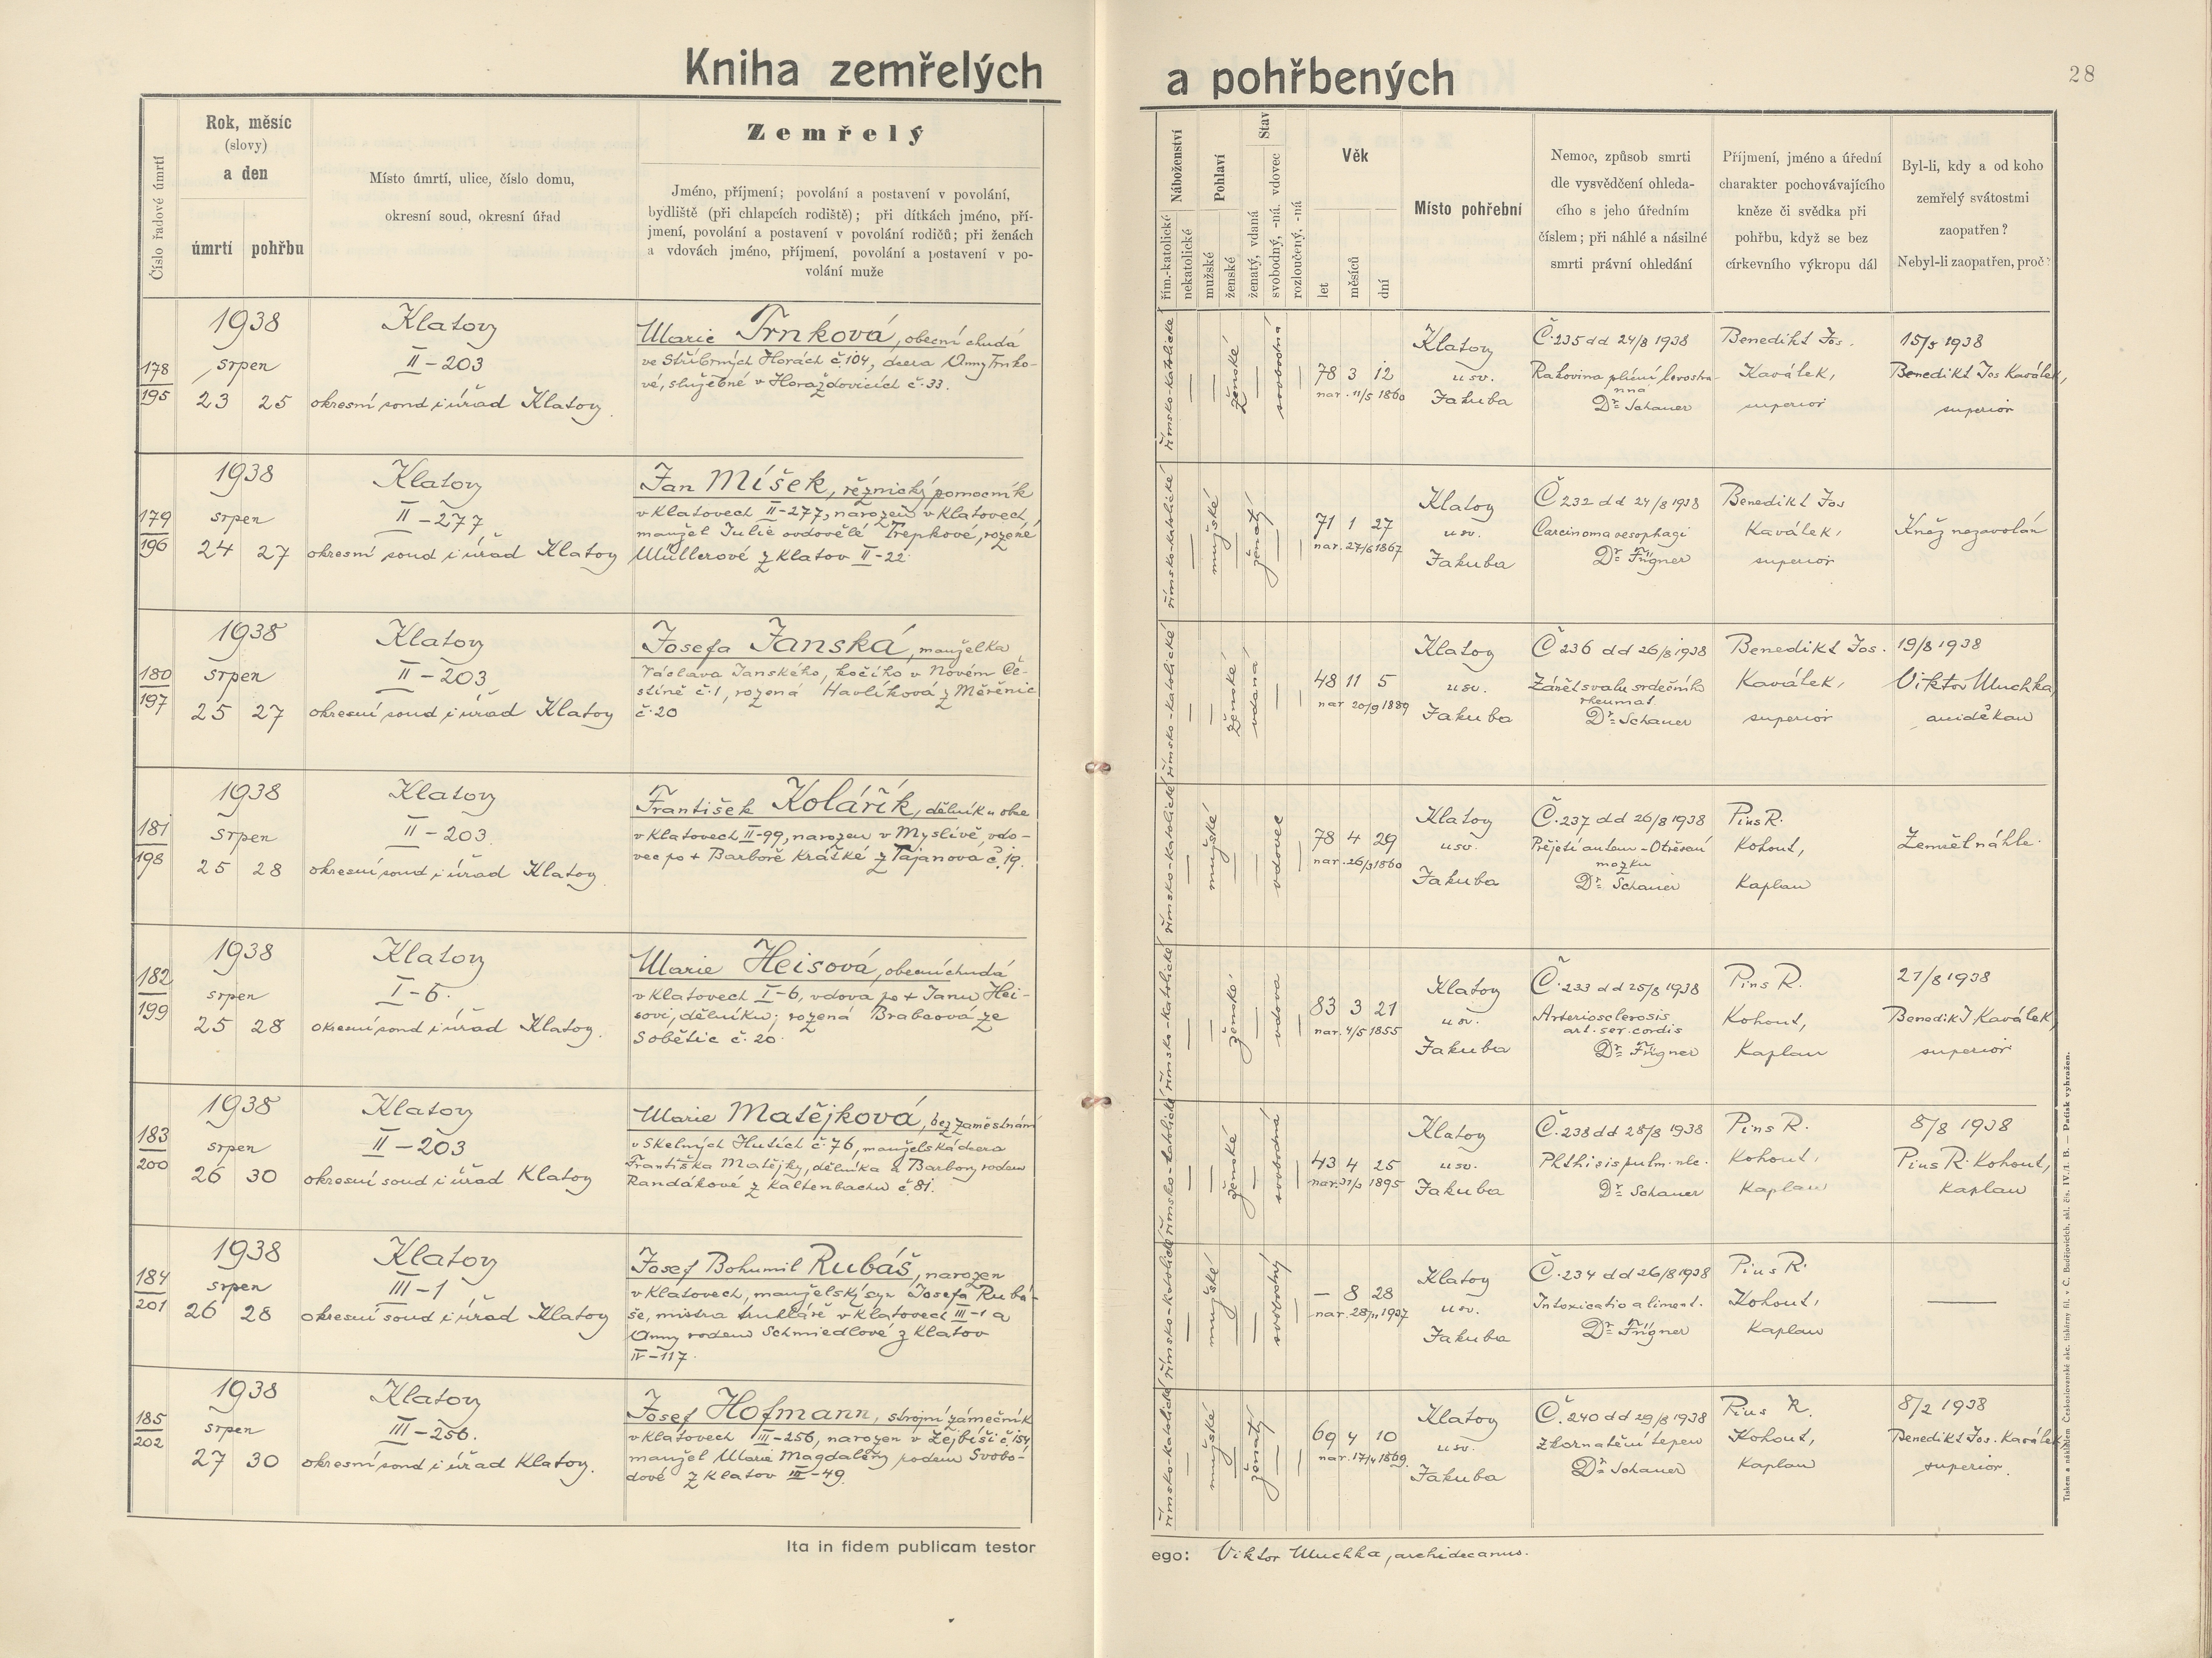 Kniha zemřelých a pohřbených
28
Číslo řadové úmrtí
Rok, měsíc
(slovy)
a den
úmrtí pohřbu
Místo úmrtí, ulice, číslo domu,
okresní soud, okresní úřad
Zemřelý
Jméno, příjmení; povolání a postavení v povolání,
bydliště (při chlapcích rodiště); při dítkách jméno, pří-
jmení, povolání a postavení v povolání rodičů; při ženách
a vdovách jméno, příjmení, povolání a postavení v po-
volání muže
Náboženství
řím.-katolické
nekatolické
Pohlaví
mužské
ženské
Stav
ženatý, vdaná
svobodný, -ná. vdovec
rozloučený, -ná
Věk
let
měsíců
dní
Místo pohřební
Nemoc, způsob smrti
dle vysvědčení ohleda-
cího s jeho úředním
číslem; při náhlé a násilné
smrti právní ohledání
Příjmení, jméno a úřední
charakter pochovávajícího
kněze či svědka při
pohřbu, když se bez
církevního výkropu dál
Byl-li, kdy a od koho
zemřelý svátostmi
zaopatřen?
Nebyl-li zaopatřen, proč?
178
195
1938
srpen
23 25
Klatovy
II-203
okresní soud i úřad Klatovy.
Marie Trnková, obecní chudá
ve Stříbrných Horách č. 104, dcera Anny Trnko-
vé, služebné v Horažďovicích č. 33.
římsko-katolické
—
—
ženské
—
svobodná
—
78 3 12
nar. 11/5 1860
Klatovy
u sv.
Jakuba
Č. 235 dd 24/8 1938
Rakovina plicní levostra-
nná
Dr. Schauer
Benedikt Jos.
Kaválek,
superior
15/8 1938
Benedikt Jos Kaválek,
superior
179
196
1938
srpen
24 27
Klatovy
II-277
okresní soud i úřad Klatovy
Jan Míšek, řeznický pomocník
v Klatovech II-277, narozen v Klatovech,
manžel Julie ovdovělé Trepkové, rozené
Müllerové z Klatov II-22
římsko-katolické
—
mužské
—
ženatý
—
—
71 1 27
nar. 27/6 1867
Klatovy
u sv.
Jakuba
Č 232 dd 24/8 1938
Carcinoma oesophagi
Dr. Fügner
Benedikt Jos
Kaválek,
superior
Kněz nezavolán
180
197
1938
srpen
25 27
Klatovy
II-203
okresní soud i úřad Klatovy
Josefa Janská, manželka
Václava Janského, kočího v Novém Če-
stíně č. 1, rozená Havlíková z Měřčic
č. 20
římsko-katolické
—
—
ženské
vdaná
—
—
48 11 5
nar 20/9 1889
Klatovy
u sv.
Jakuba
Č 236 dd 26/8 1938
Zánět svalu srdečního
rheumat.
Dr. Schauer
Benedikt Jos.
Kaválek,
superior
19/8 1938
Viktor Muchka
arciděkan
181
198
1938
srpen
25 28
Klatovy
II-203.
okresní soud i úřad Klatovy
František Kolářík, dělník u obce
v Klatovech II-99, narozen v Myslívě, vdo-
vec po + Barboře Krátké z Tajanova č. 19.
římsko-katolické
—
mužské
—
—
vdovec
—
78 4 29
nar. 26/3 1860
Klatovy
u sv.
Jakuba
Č. 237 dd 26/8 1938
Přejetí autem - Otřesení
mozku
Dr. Schauer
Pius R.
Kohout,
Kaplan
Zemřel náhle.
182
199
1938
srpen
25 28
Klatovy
I-6.
okresní soud i úřad Klatovy.
Marie Heisová, obecní chudá
v Klatovech I-6, vdova po + Janu Hei-
sovi, dělníku; rozená Brabcová ze
Sobětic č. 20
římsko-katolické
—
—
ženské
—
vdova
—
83 3 21
nar. 4/5 1855
Klatovy
u sv.
Jakuba
Č. 233 dd 25/8 1938
Arteriosclerosis
art. ser. cordis
Dr. Fügner
Pius R.
Kohout,
Kaplan
21/8 1938
Benedikt J Kaválek,
superior
183
200
1938
srpen
26 30
Klatovy
II-203
okresní soud i úřad Klatovy
Marie Matějková, bez zaměstnání
v Skelných Hutích č. 76, manželská dcera
Františka Matějky, dělníka a Barbory rodem
Randákové z Kaltenbachu č. 81.
římsko-katolické
—
—
ženské
—
svobodná
—
43 4 25
nar. 31/3 1895
Klatovy
u sv.
Jakuba
Č. 238 dd 28/8 1938
Phthisis pulm. ulc.
Dr. Schauer
Pius R.
Kohout,
Kaplan
8/8 1938
Pius R. Kohout,
Kaplan
184
201
1938
srpen
26 28
Klatovy
III-1
okresní soud i úřad Klatovy
Josef Bohumil Rubáš, narozen
v Klatovech, manželský syn Josefa Rubá-
še, mistra truhláře v Klatovech III-1 a
Anny rodem Schmiedlové z Klatov
IV-117.
římsko-katolické
—
mužské
—
—
svobodný
—
— 8 28
nar. 28/11 1937
Klatovy
u sv.
Jakuba
Č. 234 dd 26/8 1938
Intoxicatio aliment.
Dr. Fügner
Pius R.
Kohout,
Kaplan
—
185
202
1938
srpen
27 30
Klatovy
III-256.
okresní soud i úřad Klatovy.
Josef Hofmann, strojní zámečník
v Klatovech III-256, narozen v Zejbiši č. 154
manžel Marie Magdaleny rodem Svobo-
dové z Klatov III-49.
římsko-katolické
—
mužské
—
ženatý
—
—
69 4 10
nar. 17/4 1869.
Klatovy
u sv.
Jakuba
Č. 240 dd 29/8 1938
Zkornatění tepen
Dr. Schauer
Pius R.
Kohout,
Kaplan
8/2 1938
Benedikt Jos. Kaválek
superior.
Ita in fidem publicam testor ego: Viktor Muchka, archidecanus.
Tiskem a nákladem Československé akc. tiskárny fil. v Č. Budějovicích, skl. čís. IV./I. B. — Patisk vyhražen.